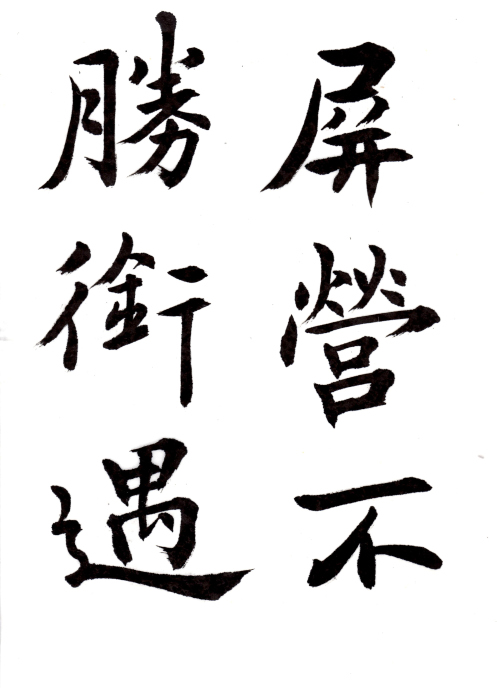 屏營不
勝銜遇